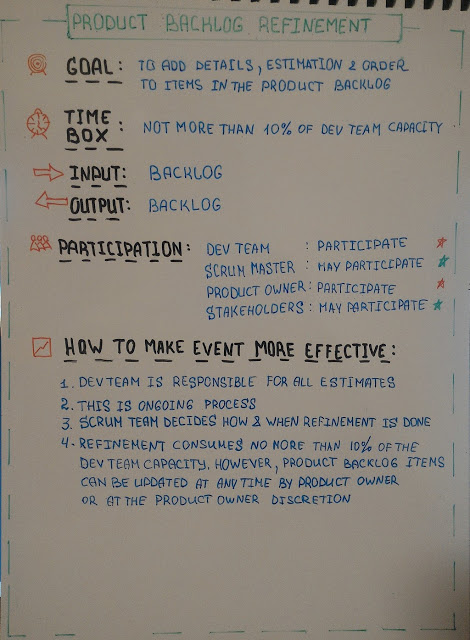 PRODUCT BACKLOG REFINEMENT
GOAL: TO ADD DETAILS, ESTIMATION & ORDER
TO ITEMS IN THE PRODUCT BACKLOG
TIME BOX: NOT MORE THAN 10% OF DEV TEAM CAPACITY
INPUT: BACKLOG
OUTPUT: BACKLOG
PARTICIPATION: DEV TEAM : PARTICIPATE
SCRUM MASTER : MAY PARTICIPATE
PRODUCT OWNER: PARTICIPATE
STAKEHOLDERS : MAY PARTICIPATE
HOW TO MAKE EVENT MORE EFFECTIVE:
1. DEV TEAM IS RESPONSIBLE FOR ALL ESTIMATES
2. THIS IS ONGOING PROCESS
3. SCRUM TEAM DECIDES HOW & WHEN REFINEMENT IS DONE
4. REFINEMENT CONSUMES NO MORE THAN 10% OF THE
DEV TEAM CAPACITY. HOWEVER, PRODUCT BACKLOG ITEMS
CAN BE UPDATED AT ANY TIME BY PRODUCT OWNER
OR AT THE PRODUCT OWNER DISCRETION